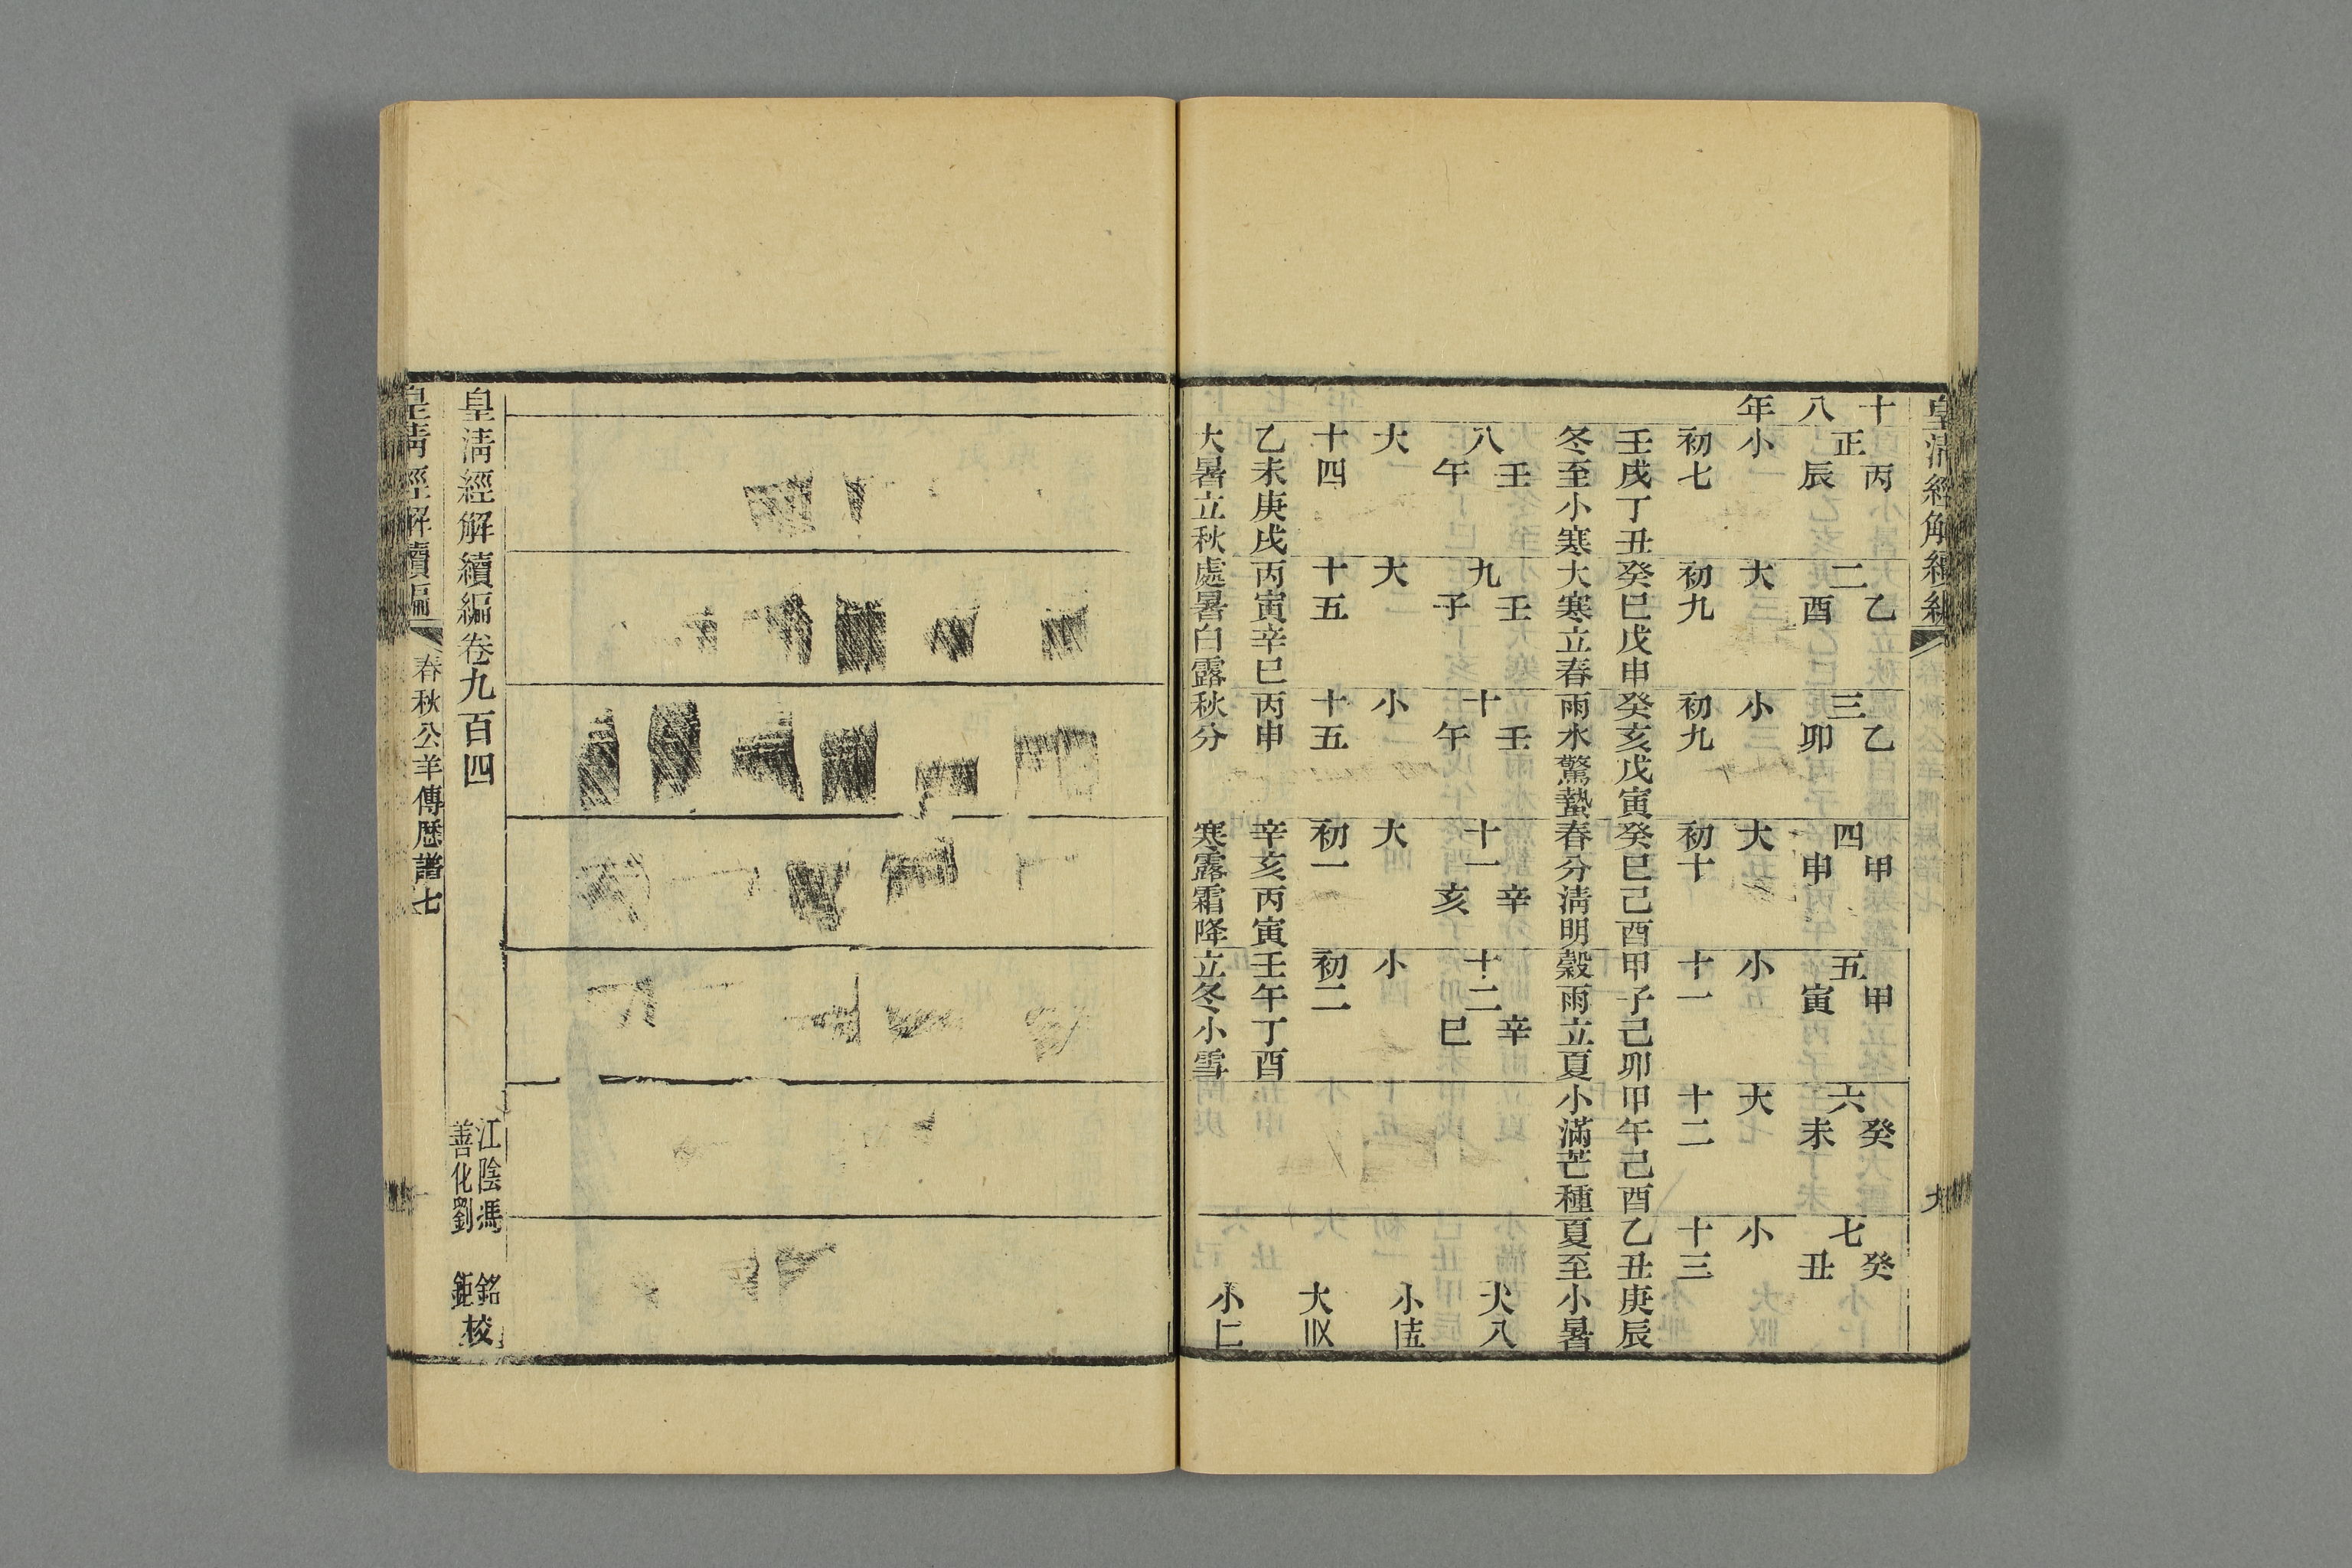 十八年
正 丙辰
二 乙酉
三 乙卯
四 甲申
五 甲寅
六 癸未
七 癸丑
小 大 小 大 小 大 小
初七 初九 初九 初十 十一 十二 十三
壬戌丁丑 癸巳戊申 癸亥戊寅 癸巳己酉 甲子己卯 甲午己酉 乙丑庚辰
冬至小寒 大寒立春 雨水驚蟄 春分清明 穀雨立夏 小滿芒種 夏至小暑
八 壬午
九 壬子
十 壬午
十一 辛亥
十二 辛巳
大八
大 大 小 大 小
小
十四 十五 十五 初一 初二
大
乙未庚戌 丙寅辛巳 丙申 辛亥丙寅 壬午丁酉
大暑立秋 處暑白露 秋分 寒露霜降 立冬小雪
小
皇清經解續編卷九百四
江陰馮銘
善化劉鉅
校
皇清經解續編
春秋公羊傳歷譜七